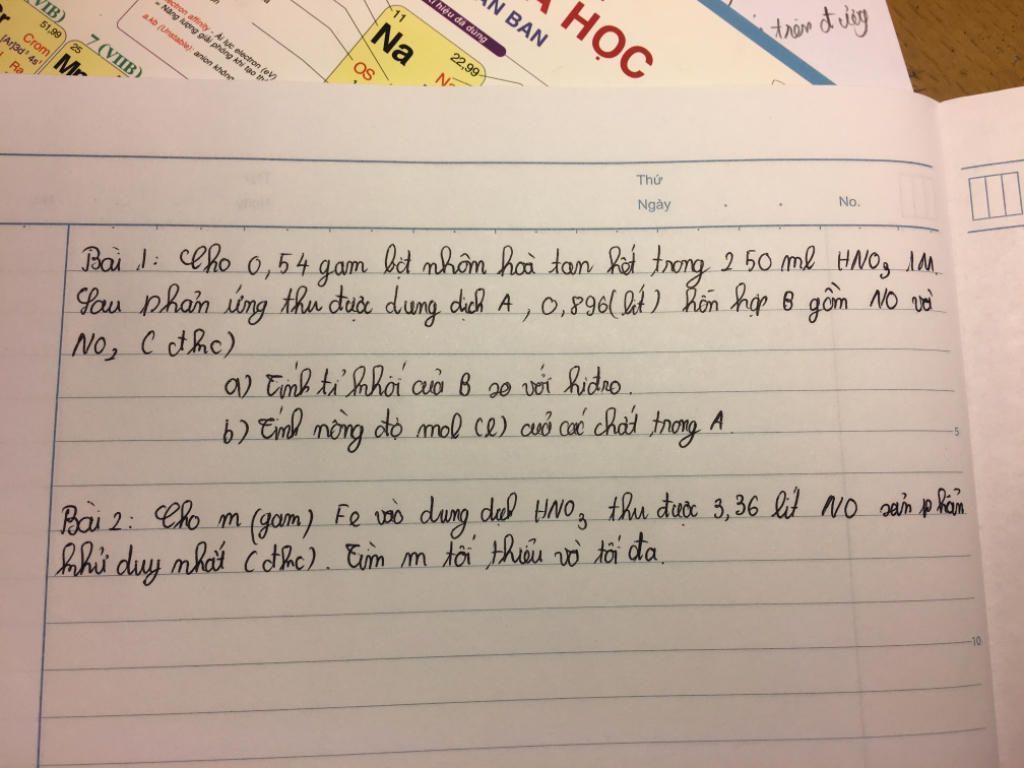 (VIB)
51,99
[Ar]3d⁵4s¹
Crom
25
7 (VIIB)
Mn
electron affinity - Ái lực electron (eV)
a.kb (Unstable): anion không
11
Na
22,99
OS
HỌC
BẢN
trên đường
Thứ
Ngày . . No.
Bài 1: Cho 0,54 gam bột nhôm hoà tan hết trong 250 ml HNO₃ 1M.
Sau phản ứng thu được dung dịch A, 0,896 (lít) hỗn hợp B gồm NO và
NO₂ (đthc)
a) Tính tỉ khối của B so với hiđro.
b) Tính nồng độ mol (l) của các chất trong A
5
Bài 2: Cho m (gam) Fe vào dung dịch HNO₃ thu được 3,36 lít NO sản phẩn
khử duy nhất (đthc). Tìm m tối thiểu và tối đa.
10